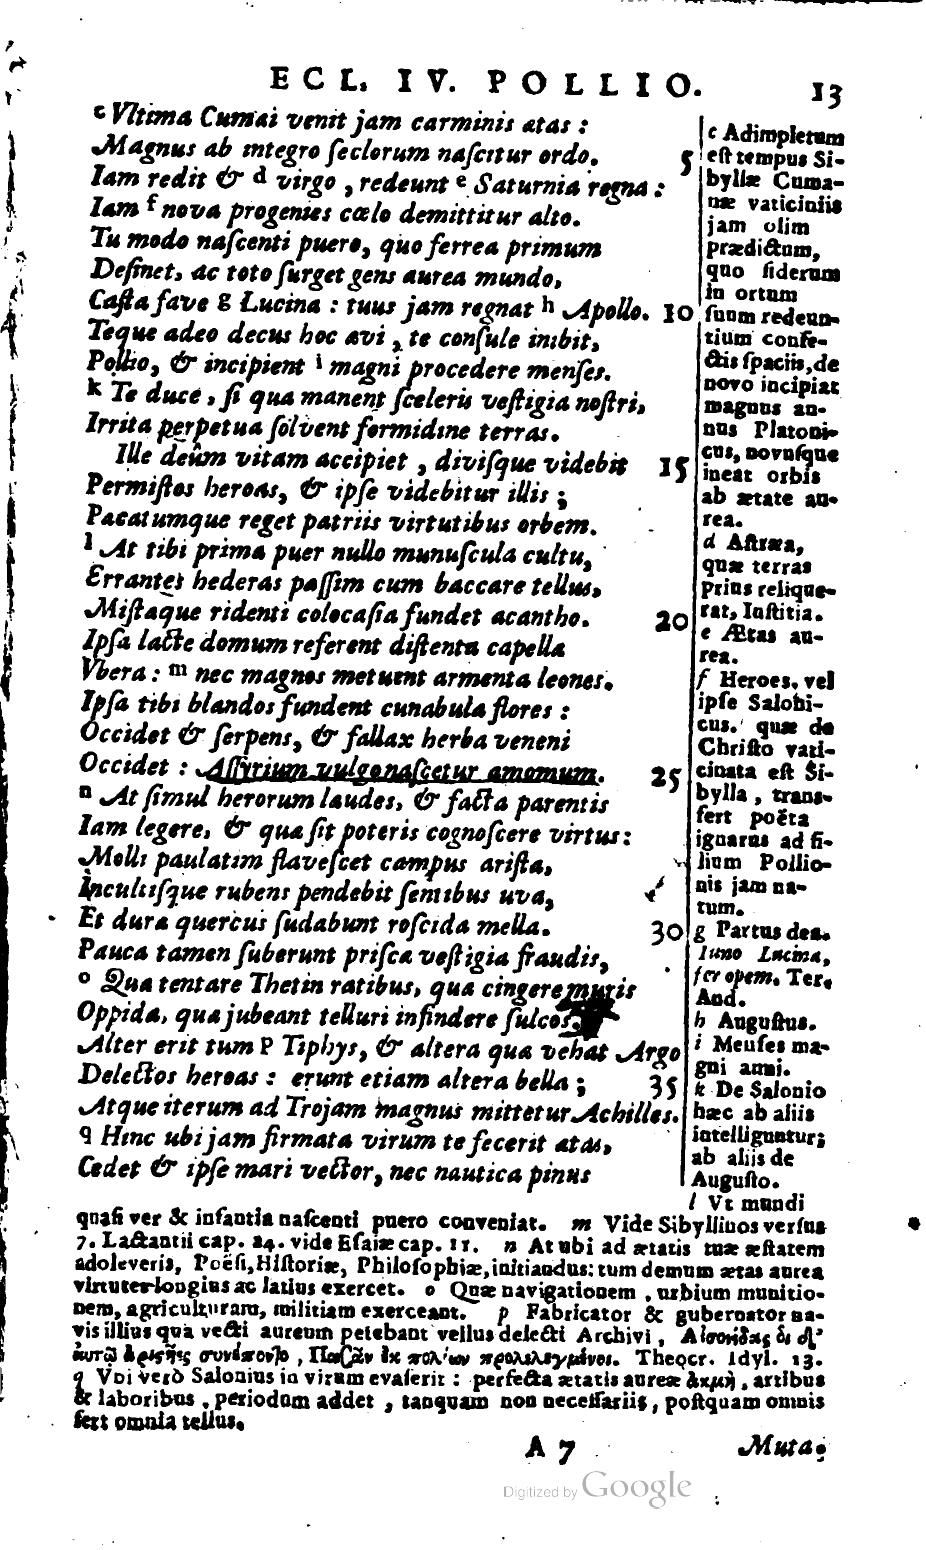 ECL. IV. POLLIO. 13
c Vltima Cumæi venit jam carminis ætas :
Magnus ab integro ſeclorum naſcitur ordo. 5
Iam redit & d virgo, redeunt e Saturnia regna :
Iam f nova progenies cœlo demittitur alto.
Tu modo naſcenti puero, quo ferrea primum
Deſinet, ac toto ſurget gens aurea mundo,
Caſta fave g Lucina : tuus jam regnat h Apollo. 10
Teque adeo decus hoc ævi, te conſule inibit,
Pollio, & incipient i magni procedere menſes.
k Te duce, ſi qua manent ſceleris veſtigia noſtri,
Irrita perpetua ſolvent formidine terras.
Ille deûm vitam accipiet, diviſque videbit 15
Permiſtos heroas, & ipſe videbitur illis ;
Pacatumque reget patriis virtutibus orbem.
l At tibi prima puer nullo munuſcula cultu,
Errantes hederas paſſim cum baccare tellus,
Miſtaque ridenti colocaſia fundet acantho. 20
Ipſa lacte domum referent diſtenta capellæ
Vbera : m nec magnos metuent armenta leones.
Ipſa tibi blandos fundent cunabula flores :
Occidet & ſerpens, & fallax herba veneni
Occidet : Aſſyrium vulgo naſcetur amomum. 25
n At ſimul heroum laudes, & facta parentis
Iam legere, & quæ ſit poteris cognoſcere virtus:
Molli paulatim flaveſcet campus ariſta,
Incultiſque rubens pendebit ſentibus uva,
Et duræ quercus ſudabunt roſcida mella. 30
Pauca tamen ſuberunt priſcæ veſtigia fraudis,
o Quæ tentare Thetin ratibus, quæ cingere muris
Oppida, quæ jubeant telluri infindere ſulcos.
Alter erit tum p Tiphys, & altera quæ vehat Argo
Delectos heroas : erunt etiam altera bella ; 35
Atque iterum ad Trojam magnus mittetur Achilles.
q Hinc ubi jam firmata virum te fecerit ætas,
Cedet & ipſe mari vector, nec nautica pinus
c Adimpletum
eſt tempus Si-
byllæ Cuma-
næ vaticiniis
jam olim
prædictum,
quo ſiderum
in ortum
ſuum redeun-
tium confe-
ctis ſpaciis, de
novo incipiat
magnus an-
nus Platoni-
cus, novuſque
ineat orbis
ab ætate au-
rea.
d Aſtræa,
quæ terras
prius relique-
rat, Iuſtitia.
e Ætas au-
rea.
f Heroes, vel
ipſe Saloni-
cus. quæ de
Chriſto vati-
cinata eſt Si-
bylla, trans-
fert poëta
ignarus ad fi-
lium Pollio-
nis jam na-
tum.
g Partus dea.
Iuno Lucina,
fer opem. Ter.
And.
h Auguſtus.
i Menſes ma-
gni anni.
k De Salonio
hæc ab aliis
intelliguntur;
ab aliis de
Auguſto.
l Vt mundi
quaſi ver & infantia naſcenti puero conveniat. m Vide Sibyllinos verſus
7. Lactantii cap. 24. vide Eſaiæ cap. 11. n At ubi ad ætatis tuæ æſtatem
adoleveris, Poëſi, Hiſtoriæ, Philoſophiæ, initiandus: tum demum ætas aurea
virtutes longius ac latius exercet. o Quæ navigationem, urbium munitio-
nem, agriculturam, militiam exerceant. p Fabricator & gubernator na-
vis illius qua vecti aureum petebant vellus delecti Archivi,
Theocr. Idyl. 13.
q Vbi verò Salonius in virum evaſerit : perfecta ætatis aureæ ἀκμὴ, artibus
& laboribus, periodum addet, tanquam non neceſſariis, poſtquam omnis
fert omnia tellus.
A 7 Muta-
Digitized by Google